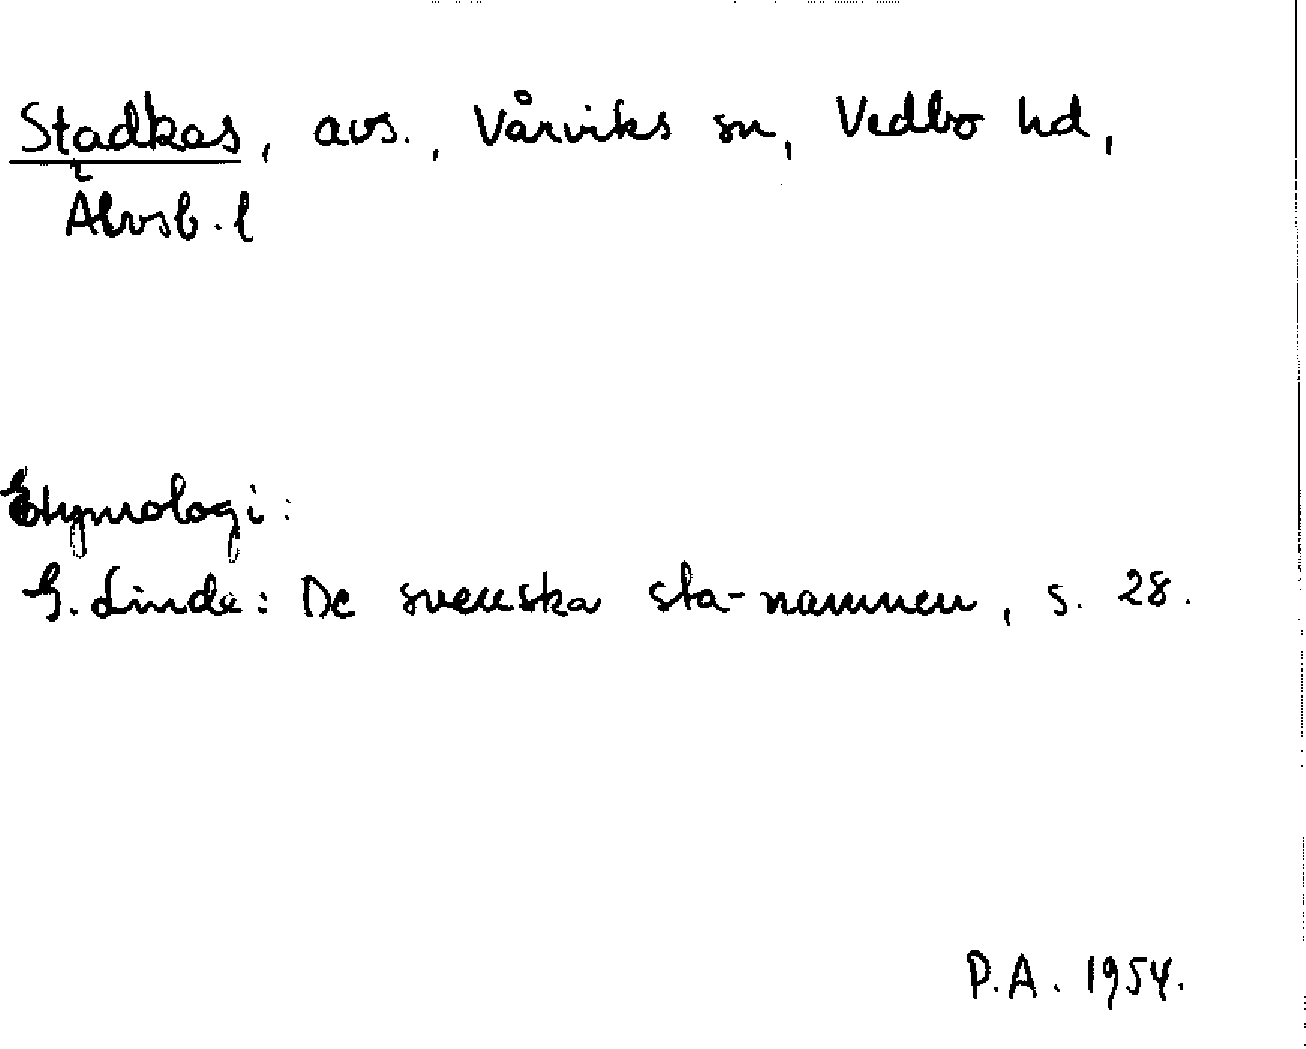 Stadkas, avs., Vårviks sn, Vedbo hd,
Älvsb. l
Etymologi:
G. Linde: De svenska sta-namnen, s. 28.
P.A. 1954.